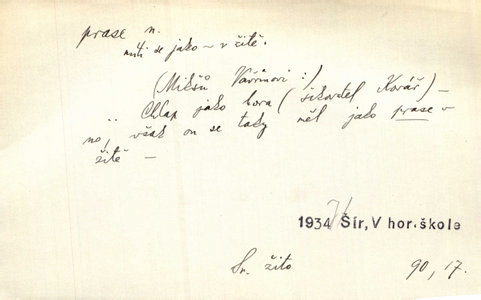 prase n.
míti se jako ~ v žitě.
(Mikšů Vavřínovi :)
.. Chlap jako hora ( šikovatel Kovář) —
no, však on se taky měl jako prase v
žitě —
1934 Šír, V hor. škole
Sr. žito 90, 17.